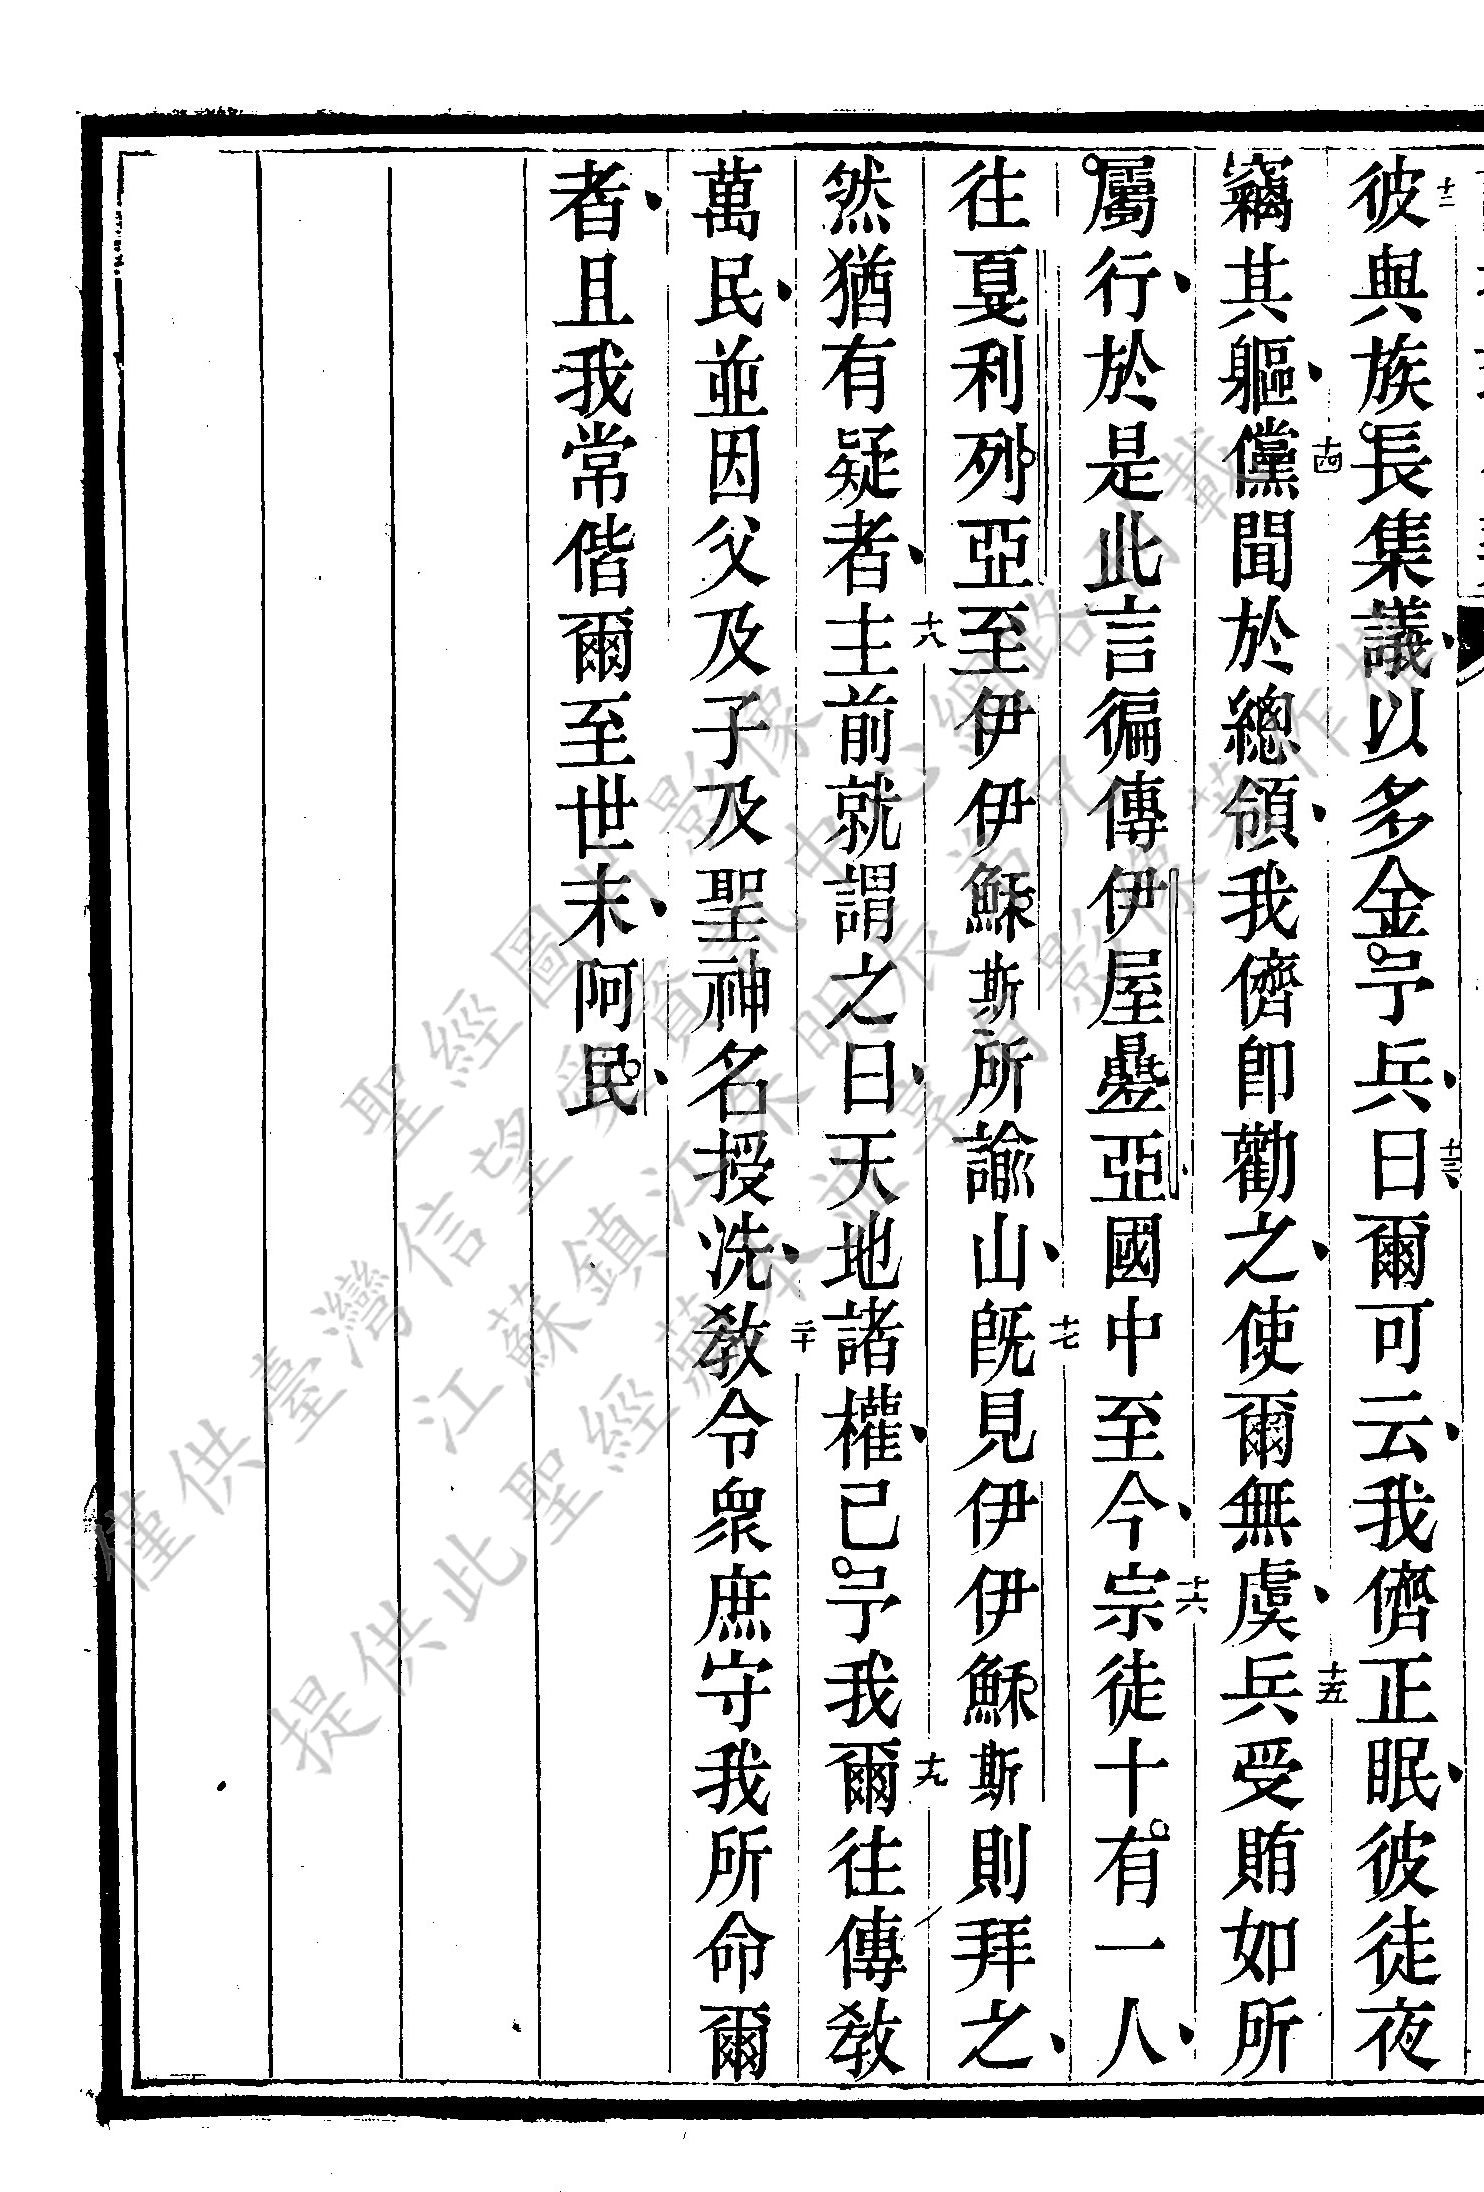 彼與族長集議以多金予兵曰爾可云我儕正眠彼徒夜
竊其軀儻聞於總領我儕即勸之使爾無虞兵受賄如所
屬行於是此言徧傳伊屋疊亞國中至今宗徒十有一人
往戛利列亞至伊伊穌斯所諭山旣見伊伊穌斯則拜之
然猶有疑者主前就謂之曰天地諸權已予我爾往傳教
萬民並因父及子及聖神名授洗教令衆庶守我所命爾
者且我常偕爾至世末阿民
十二
十三
十四
十五
十六
十七
十八
十九
二十
僅供臺灣信望愛資訊中心網路刊載
江蘇鎮江朱明辰弟兄
提供此聖經藏本並享有影像著作權